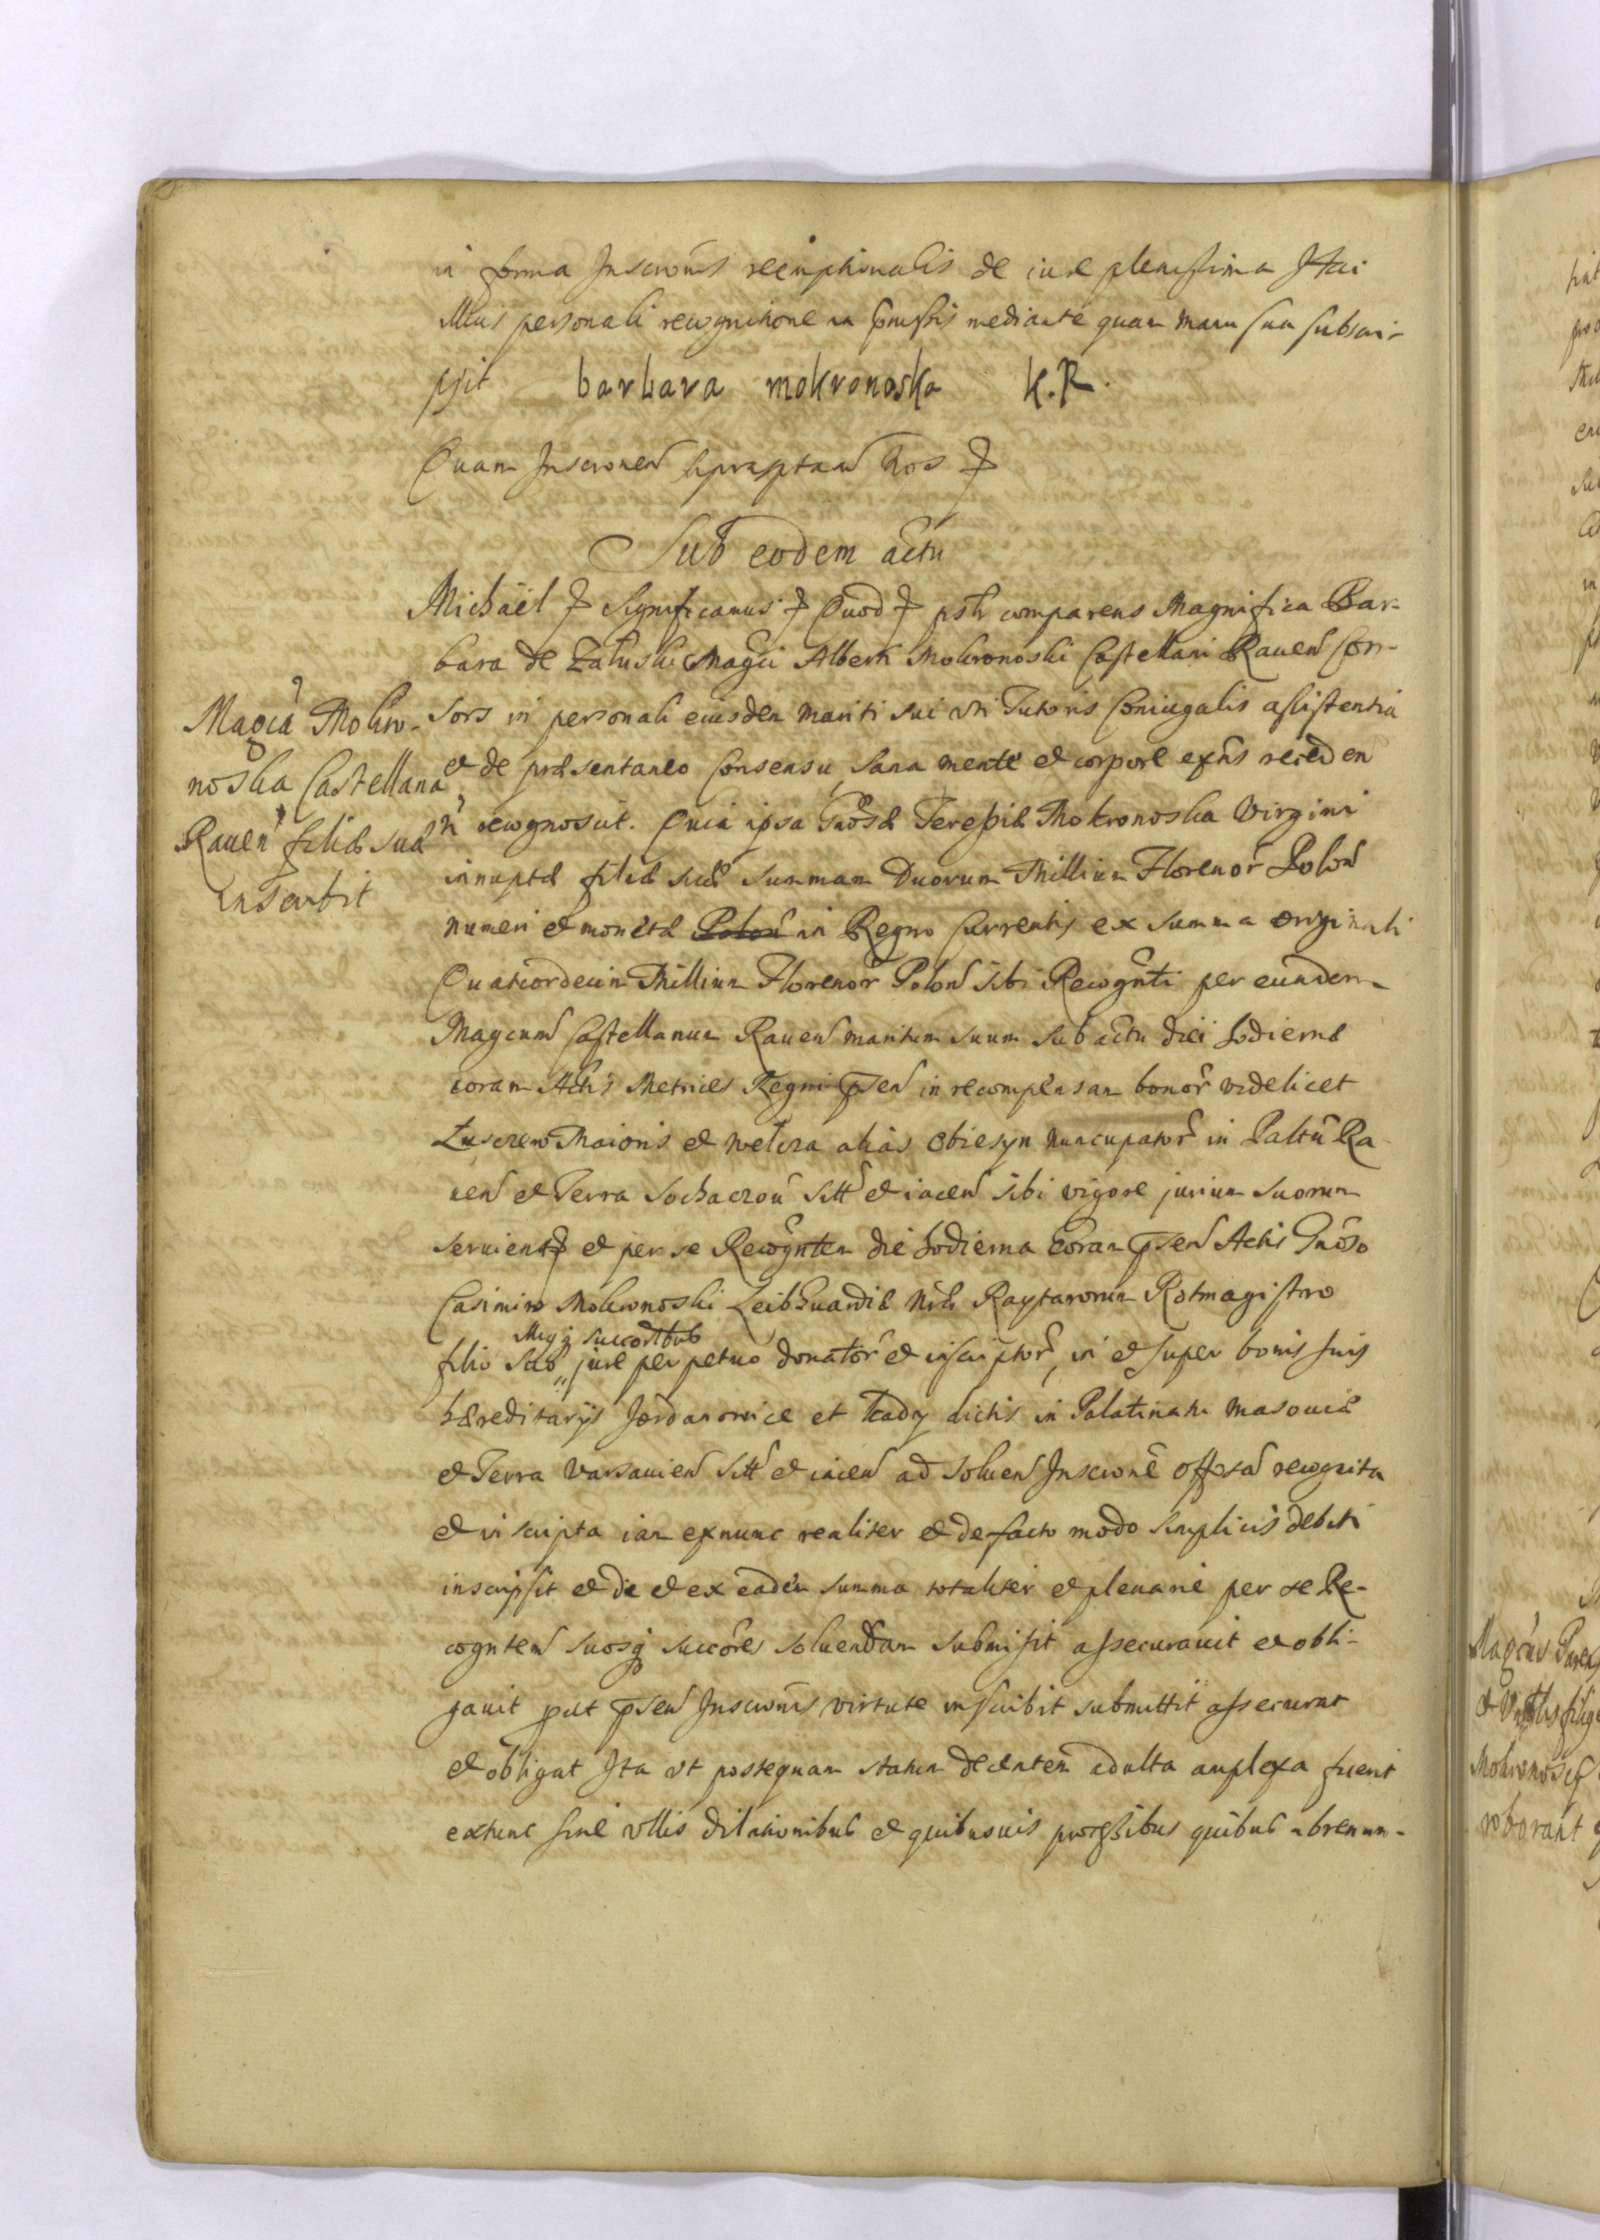 in forma Inscrōnis reemptionalis de iure plenissima
illius personali recognitione in pmissis mediante quam manu sua subscri-
psit barbara mokronoska K.R.
Quam Inscrōnen suprascptam nos
Sub eodem actu
Michaël Significamus Quod psltr comparens Magnifica Bar-
bara de Załuskie Magci Alberti Mokronoski Castellani Raven Con-
sors in personali eiusdem mariti sui vti Tutoris Coniugalis assistentia
et de præsentaneo Consensu, sana mente et corpore exns
recognovit. Quia ipsa Gnosæ Teressiæ Mokronoska Virgini
innuptæ filiæ suæ summam Duorum Millium Florenor Polon
numeri et monetæ Polon in Regno Currentis ex summa originali
Quatuordecim Millium Florenor Polon sibi Recognti per eundem
Magcum Castellanum Raven maritum suum sub actu diei hodiernæ
coram Actis Metrices Regni psen in recompensam bonor videlicet
Maioris et alias nuncupator in Paltu Ra
ven et Terra Sochaczou sitt et iacen sibi vigore jurium suorum
servient et per se Recognten die hodierna Coram psen Actis Gnoso
Casimiro Mokronoski Leibguardiæ Raytarorum Rotmagistro
filio suo jure perpetuo donator et inscriptor, in et super bonis suis
succoribus
hæreditarijs Jordanowice et dictis in Palatinatu Masoviæ
et Terra Varsavien sitt et iacen ad solven Inscrōne recognita
et inscripta iam exnunc realiter et defacto modo simplicis debiti
inscripsit et de et ex eadem summa totaliter et plenarie per se Re-
cognten suosq succores solvendam submisit assecuravit et obli-
gavit put psen Inscrōnis virtute inscribit submittit assecurat
et obligat Ita vt postequam statum decenten adulta amplexa fuerit
extunc sine vllis dilationibus et quibusvis processibus quibus abrenun-
Magca Mokro-
noska Castellana
Raven filiæ suæ
inscribit